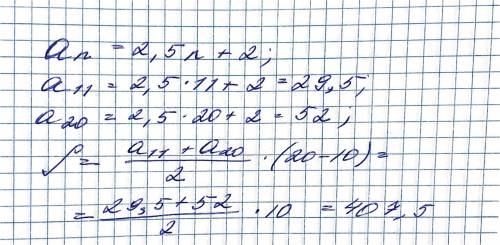 aₙ = 2,5n + 2;
a₁₁ = 2,5 · 11 + 2 = 29,5;
a₂₀ = 2,5 · 20 + 2 = 52;
S = (a₁₁ + a₂₀)/2 · (20 − 10) =
= (29,5 + 52)/2 · 10 = 407,5